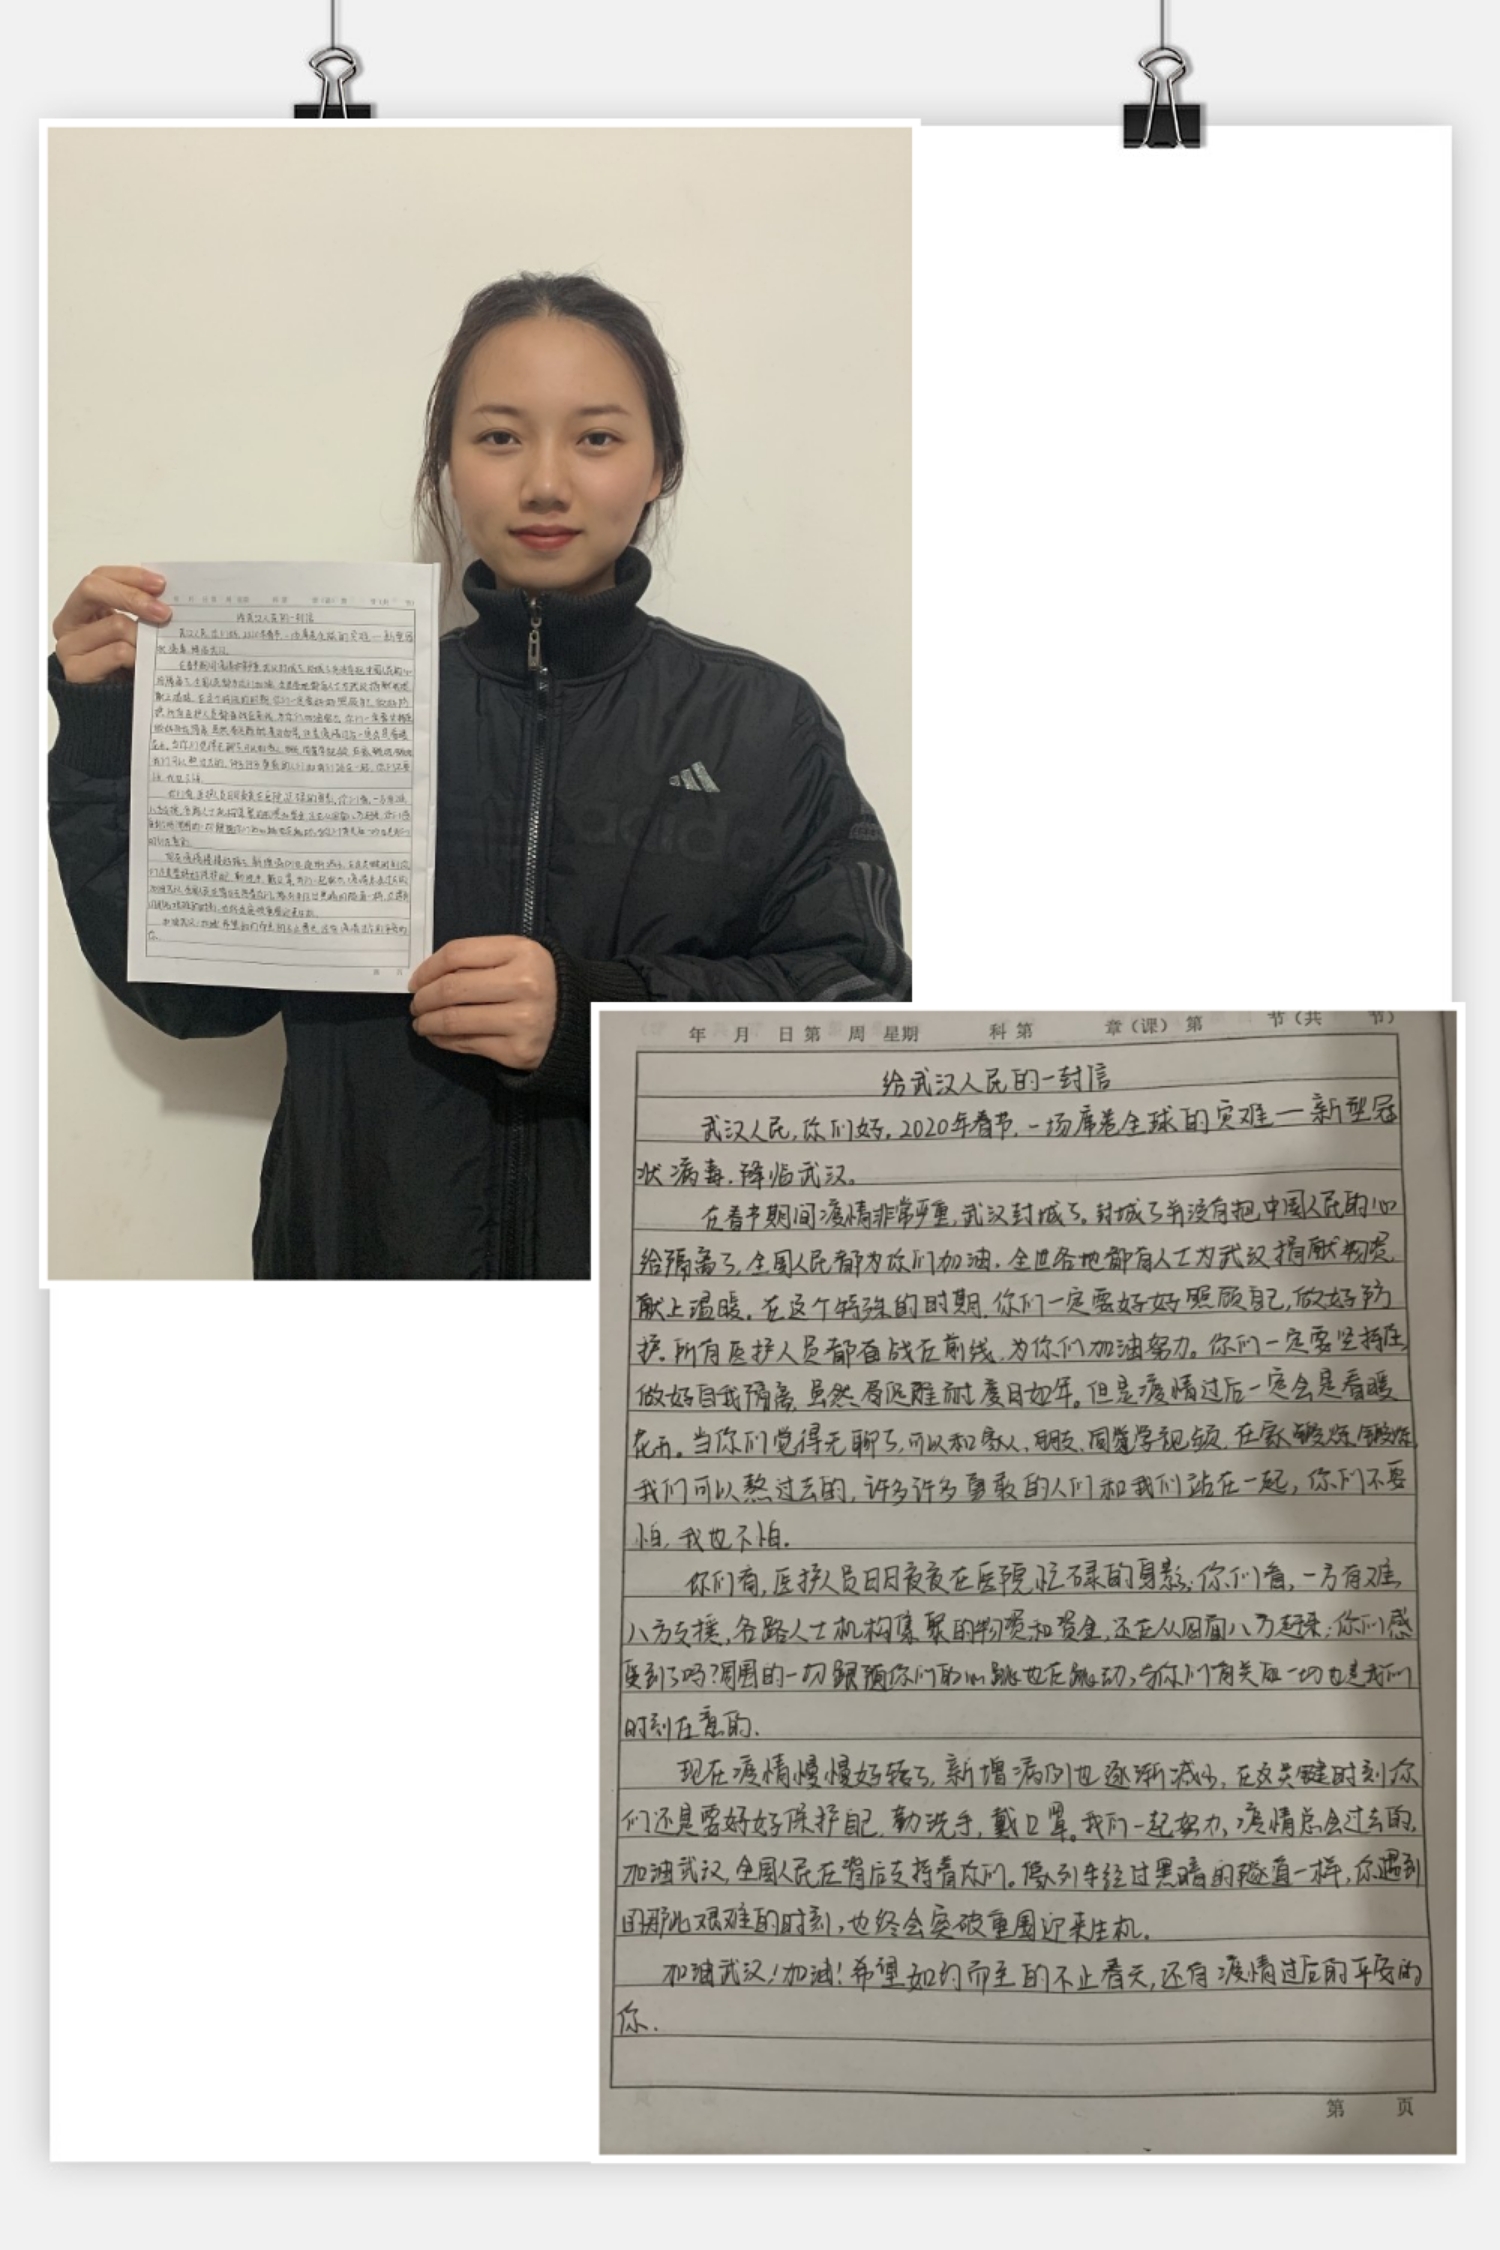 年 月 日 第 周 星期 科 第 章(课) 第 节(共 节)
给武汉人民的一封信
武汉人民,你们好。2020年春节,一场席卷全球的灾难—新型冠
状病毒,降临武汉。
在春节期间疫情非常严重,武汉封城了。封城了并没有把中国人民的心
给隔离了,全国人民都为你们加油。全世各地都有人士为武汉捐献物资,
献上温暖。在这个特殊的时期,你们一定要好好照顾自己,做好防
护。所有医护人员都奋战在前线,为你们加油努力。你们一定要坚持住,
做好自我隔离,虽然 难耐度日如年。但是疫情过后一定会是春暖
花开。当你们觉得无聊了,可以和家人、朋友、同 视频,在家锻炼锻炼,
我们可以熬过去的,许多许多勇敢的人们和我们站在一起,你们不要
怕,我也不怕。
你们看,医护人员日日夜夜在医院忙碌的身影;你们看,一方有难,
八方支援,各路人士机构集聚的物资和资金,还在从四面八方赶来;你们感
受到了吗?周围的一切跟随你们的心跳也在跳动,与你们有关的一切也是我们
时刻在意的.
现在疫情慢慢好转了,新增病例也逐渐减少,在这关键时刻你
们还是要好好保护自己,勤洗手,戴口罩。我们一起努力,疫情总会过去的,
加油武汉,全国人民在背后支持着你们。像列车经过黑暗的隧道一样,你遇到
的那些艰难的时刻,也终会突破重围迎来生机.
加油武汉!加油!希望如约而至的不止春天,还有疫情过后的平安的
你.
第 页